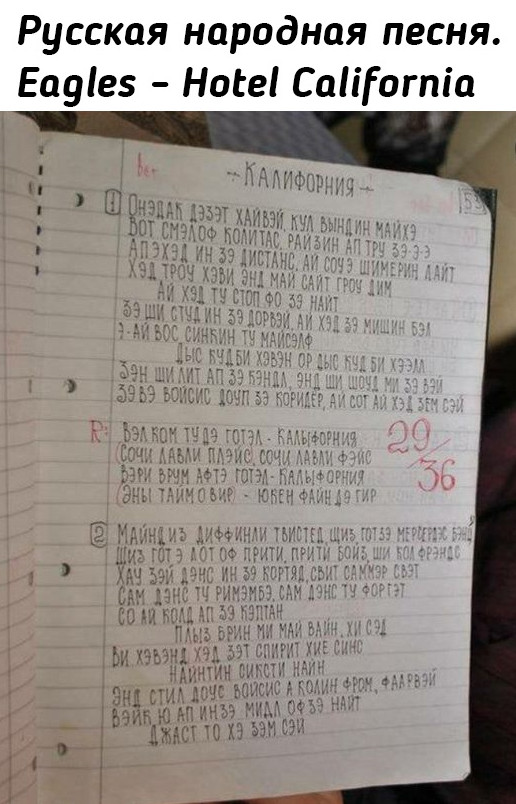 Русская народная песня.
Eagles - Hotel California
- КАЛИФОРНИЯ -
53
1 ОНЭДАК ДЭЗЭТ ХАЙВЭЙ, КУЛ ВЫНД ИН МАЙХЭ
ВОТ СМЭЛОФ КОЛИТАС, РАЙЗИН АП ТРУ ЗЭ-Э-Э
АПЭХЭД ИН ЗЭ ДИСТАНС, АЙ СОУЭ ШИМЕРИН ЛАЙТ
ХЭД ГРОУ ХЭВИ ЭНД МАЙ САЙТ ГРОУ ДИМ
АЙ ХЭД ТУ СТОП ФО ЗЭ НАЙТ
ЗЭ ШИ СТУД ИН ЗЭ ДОРВЭЙ, АЙ ХЭД ЗЭ МИШИН БЭЛ
Э-АЙ ВОС СИНКИН ТУ МАЙСЭЛФ
ДЫС КУД БИ ХЭВЭН ОР ДЫС КУД БИ ХЭЭЛЛ
ЗЭН ШИ ЛИТ АП ЗЭ КЭНДЛ, ЭНД ШИ ШОУД МИ ЗЭ ВЭЙ
ЗЭВЭ ВОЙСИС ДОУП ЗЭ КОРИДЁР, АЙ СОТ АЙ ХЭД ЗЕМ СЭЙ
R: ВЭЛКОМ ТУ ДЭ ГОТЭЛ - КАЛЫФОРНИЯ
(СОЧИ ЛАВЛИ ПЛЭЙС), СОЧИ ЛАВЛИ ФЭЙС
ВЭРИ ВРУМ АФТЭ ГОТЭЛ- КАЛЫФОРНИЯ
(ЭНЫ ТАЙМ О ВИР) - ЮКЕН ФАЙН ДЭ ГИР
29/36
2 МАЙНД ИЗ ДИФФИНЛИ ТВИСТЕД, ЩИЗ ГОТЗЭ МЕРСЕРДЭС БЭНД
ШИЗ ГОТ Э ЛОТ ОФ ПРИТИ, ПРИТИ БОЙЗ, ШИ КОЛ ФРЭНДС
ХАУ ЗЭЙ ДЭНС ИН ЗЭ КОРТЯД, СВИТ САММЭР СВЭТ
САМ ДЭНС ТУ РИМЭМБЭ, САМ ДЭНС ТУ ФОРГЭТ
СО АЙ КОЛД АП ЗЭ КЭПТАН
ПЛЫЗ БРИН МИ МАЙ ВАЙН, ХИ СЭД
ВИ ХЭВЭНД ХЭД ЗЭТ СПИРИТ ХИЕ СИНС
НАЙНТИН СИКСТИ НАЙН
ЭНД СТИЛ ДОУС ВОЙСИС А КОЛИН ФРОМ, ФААРВЭЙ
ВЭЙК Ю АП ИН ЗЭ МИДЛ ОФ ЗЭ НАЙТ
ДЖАСТ ТО ХЭ ЗЭМ СЭЙ